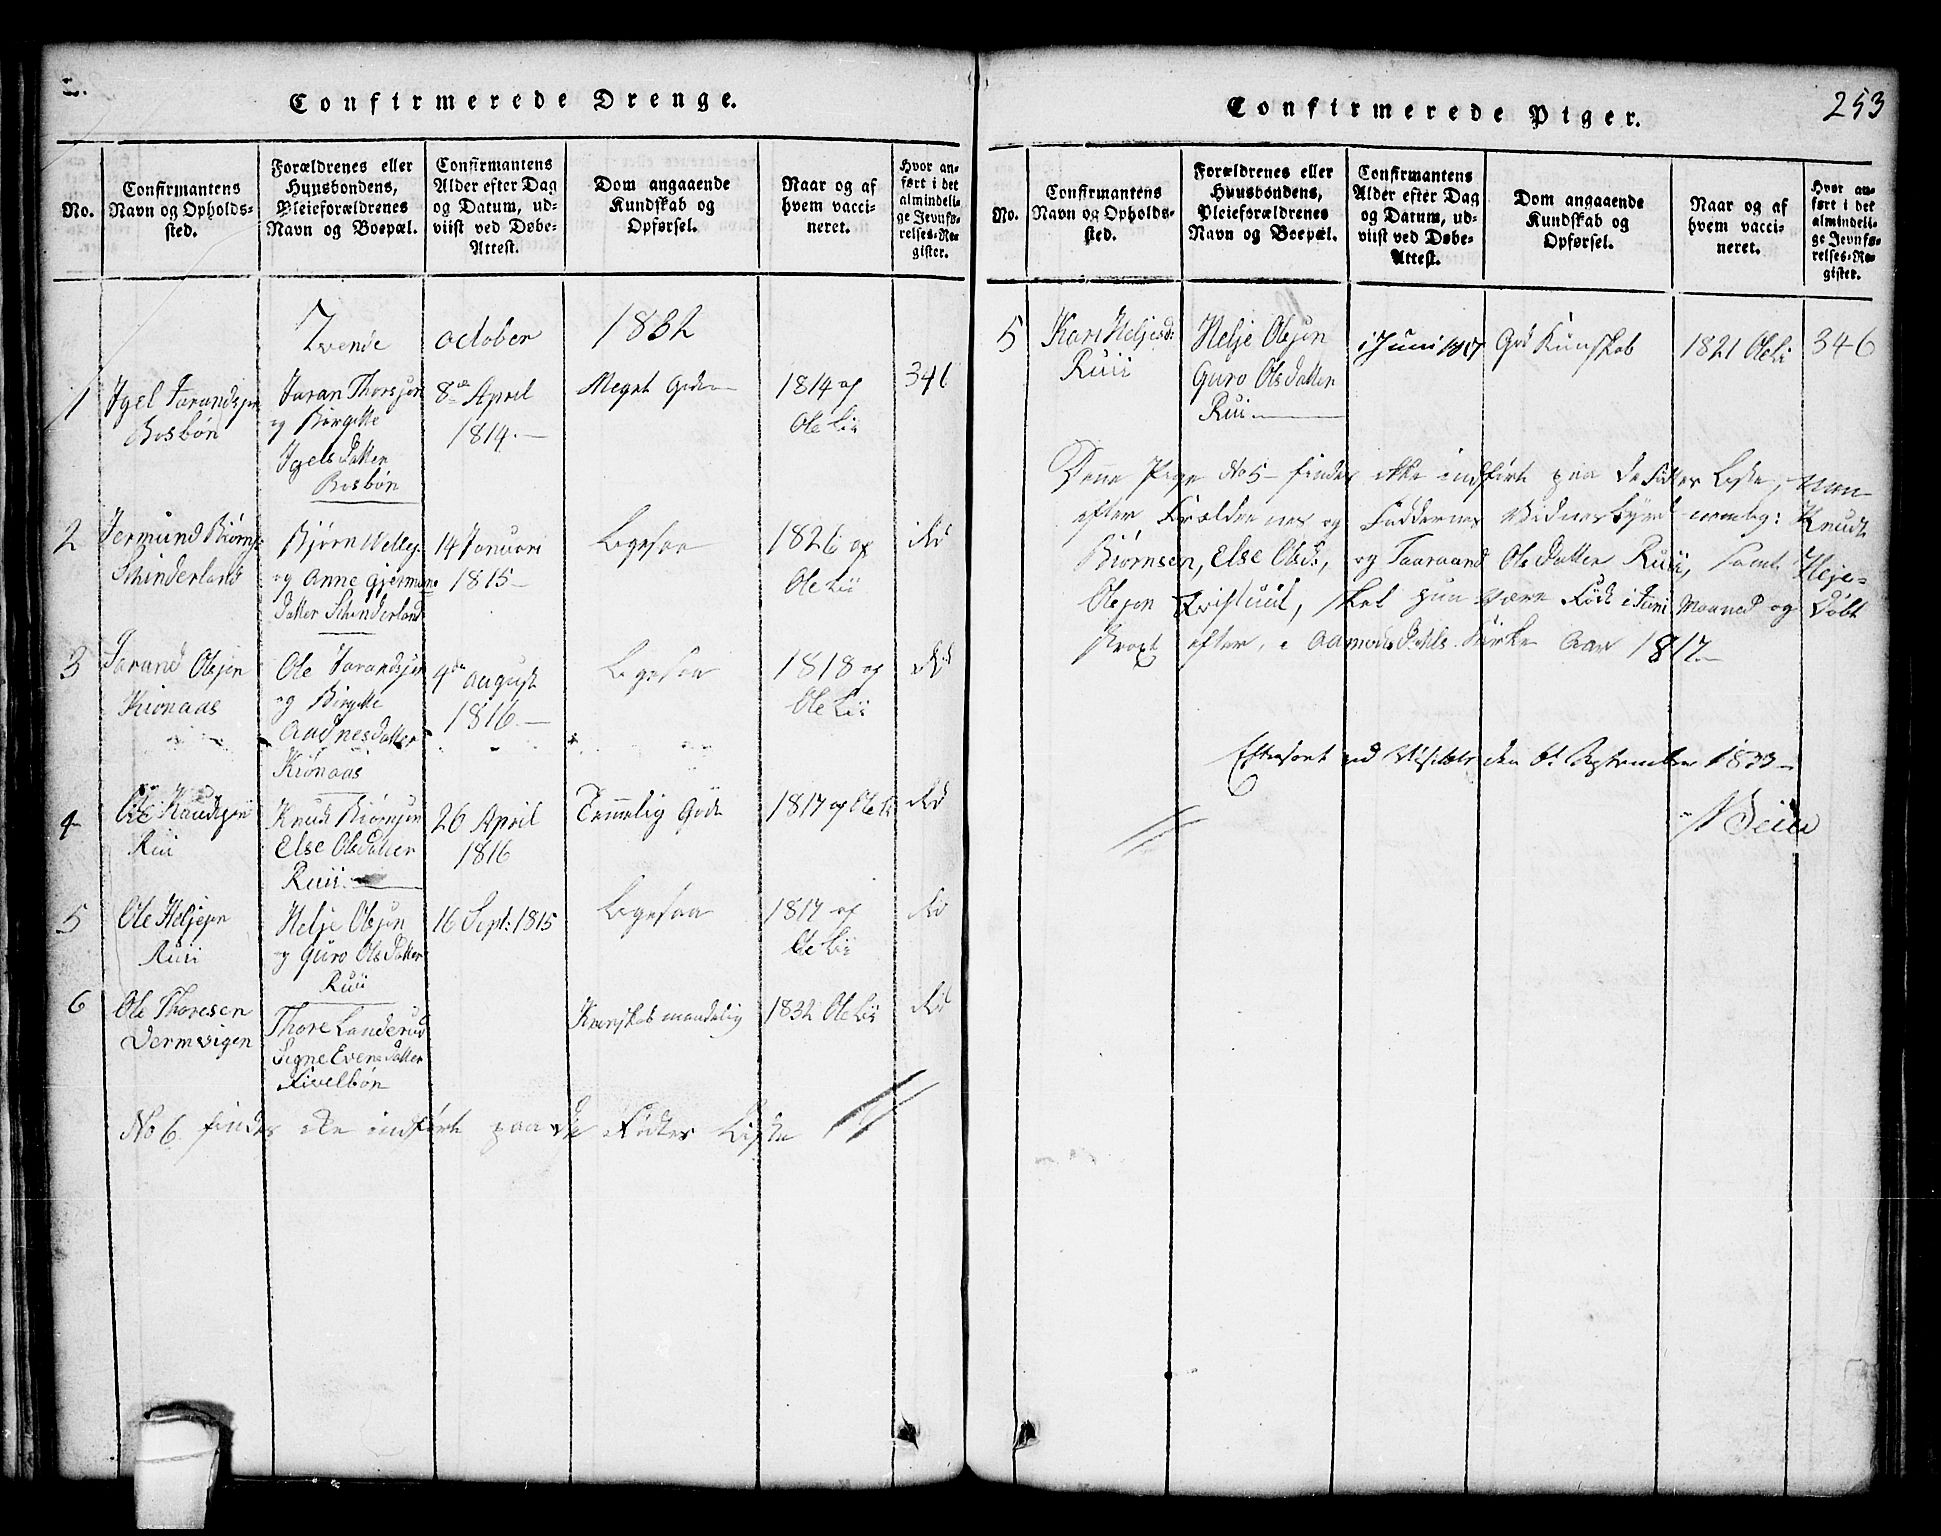 Confirmerede Drenge.
No.
Confirmantens Navn og Opholds-sted.
Forældrenes eller Huusbondens, Pleieforældrenes Navn og Boepæl.
Confirmantens Alder efter Dag og Datum, ud-viist ved Døbe-Attest.
Dom angaaende Kundskab og Opførsel.
Naar og af hvem vacci-neret.
Hvor an-ført i det almindeli-ge Jevnfø-relses-Re-gister.
october 1832
1 Ygel Tarandsøn Bosbøn
Taran Thorsøn og Birgitte Ygels Datter Bosbøn
8de April 1814.
Meget Gode
1814 af Ole Lii
346
2 Jermund Biørns: Schinderland
Bjørn og Anne Gjermunds Datter Schinderland
14 Januari 1815
Ligesaa
1826 af Ole Lii
3 Tarand Olesøn Kiønaas
Ole Tarandsøn og Birgitte Aadnes Datter Kiønaas
4de August 1816.
Ligesaa
1818 af Ole Lii
4 Ole Knudsøn Ruii
Knud Biørnsøn Else Olsdatter Ruii
26 April 1816
Temmelig Gode
1817 af Ole Li
5 Ole Heljesøn Ruii
Helje Olesøn og Guro Olsdatter Ruii
16 Sept: 1815
Ligesaa
1817 af Ole Lii
6 Ole Thoresen Dermvigen
Thore Landerud Signe Evensdatter Fivelbøn
Kunskab maadelig
1832 Ole Lii
No 6. findes ikke indført paa De Fødtes Liste
Confirmerede Piger.
253
No.
Confirmantens Navn og Opholds-sted.
Forældrenes eller Huusbondens, Pleieforældrenes Navn og Boepæl.
Confirmantens Alder efter Dag og Datum, ud-viist ved Døbe-Attest.
Dom angaaende Kundskab og Opførsel.
Naar og af hvem vacci-neret.
Hvor an-ført i det almindeli-ge Jevnfø-relses-Re-gister.
5 Kari Heljesd: Ruii
Helje Olesøn Guro Olsdatter Rui
i Juni 1817
God Kunskab
1821 Ole Li
346
Denne Pige No 5 findes ikke indført paa de Fødtes Liste, men
efter Forældrenes og Faddernes Vidnesbyrd nemlig: Knudt
Biørnsen, Else Olsd:, og Taaraand Olsdatter Ruii, samt Helje
Olesøn, skal hun være Født i Juni Maaned og Døbt
strax efter, i Aamodsdahls Kirke Aar 1817.
Efterseet ved Visitats den 6t September 1833